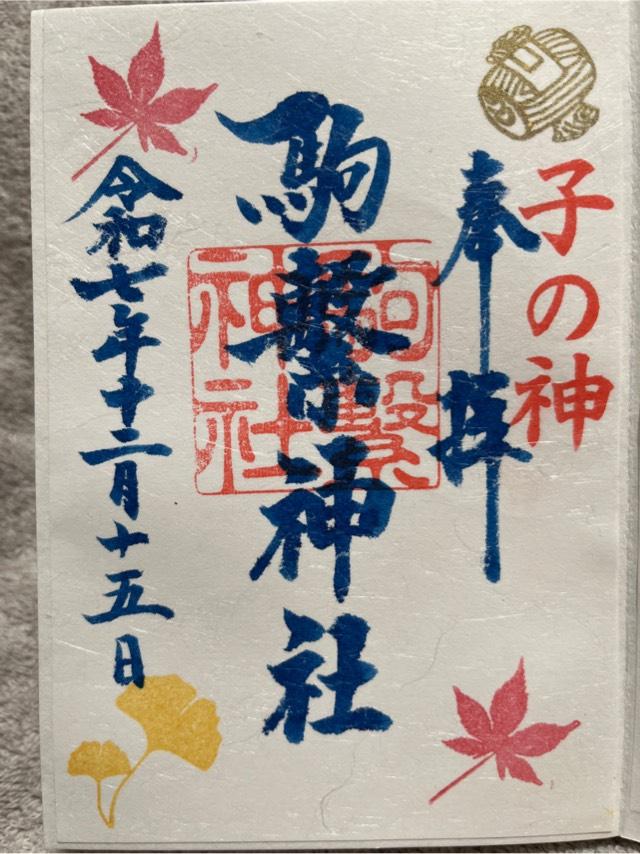 子の神
奉拝
駒繋神社
駒繋
神社
令和七年十二月十五日